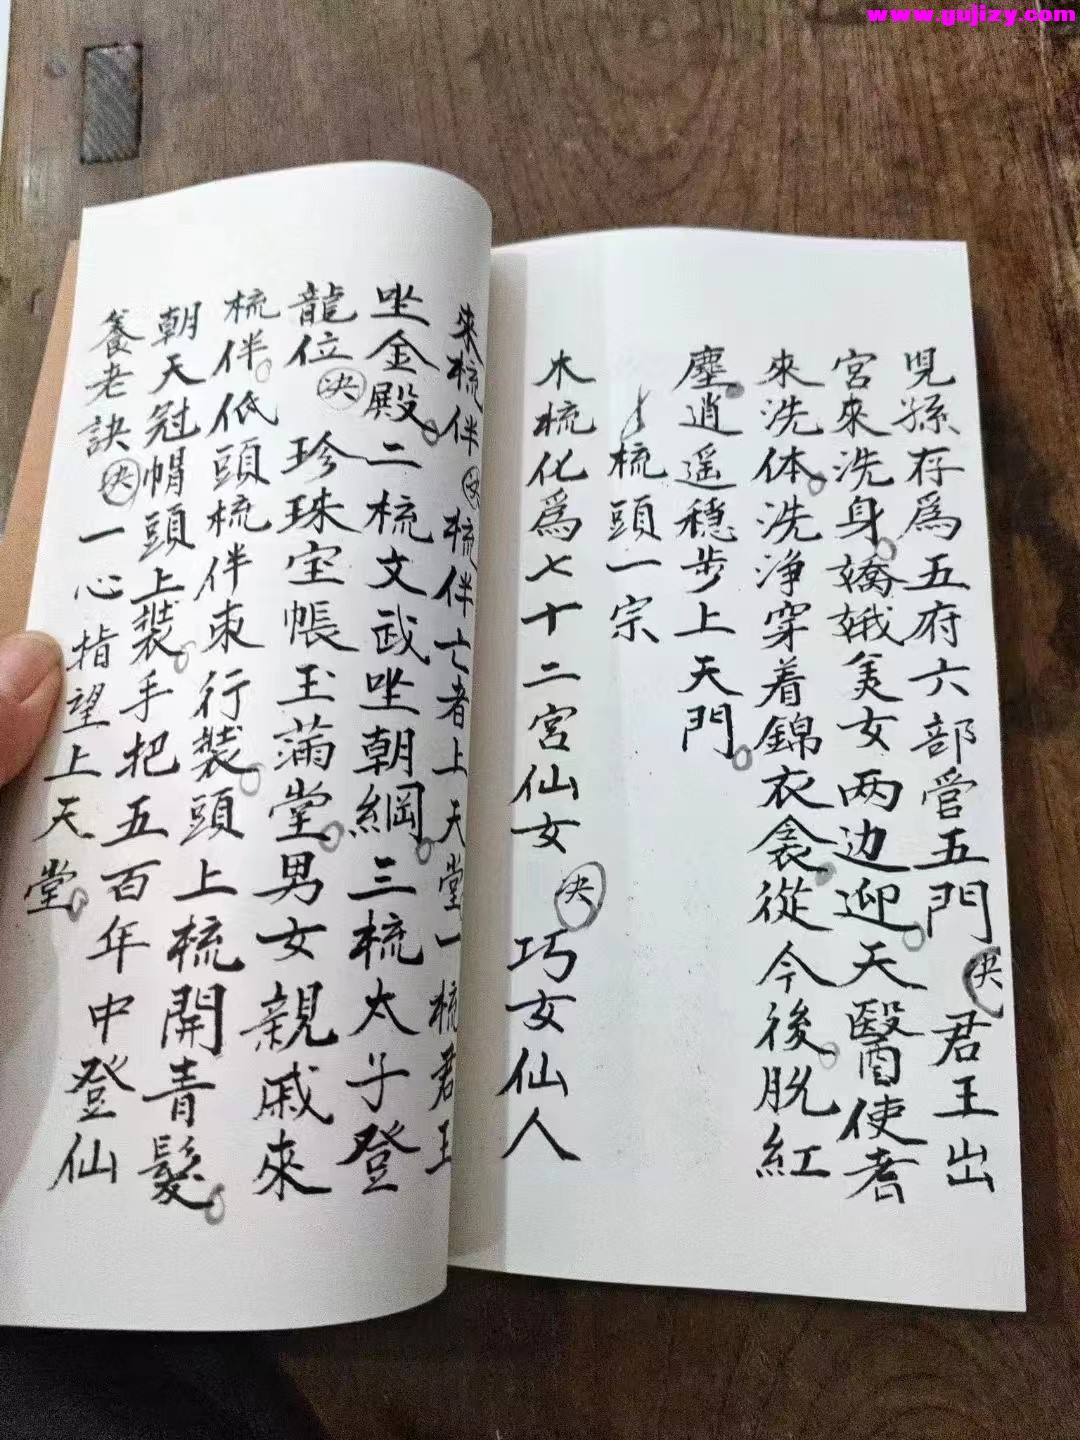 www.gujizy.com
児孫存為五府六部官五門 决 君王出
宮來洗身嬌娥美女两边迎天醫使者
來洗体洗浄穿着錦衣衾從今後脱紅
塵逍遥穩步上天門
梳頭一宗
木梳化為七十二宮仙女 决 巧女仙人
來梳伴 决 梳伴亡者上天堂一梳君王
坐金殿二梳文武坐朝綱三梳太子登
龍位 决 珍珠宝帳玉滿堂男女親戚來
梳伴低頭梳伴束行裝頭上梳開青髮
朝天冠帽頭上裝手把五百年中登仙
養老訣 决 一心指望上天堂